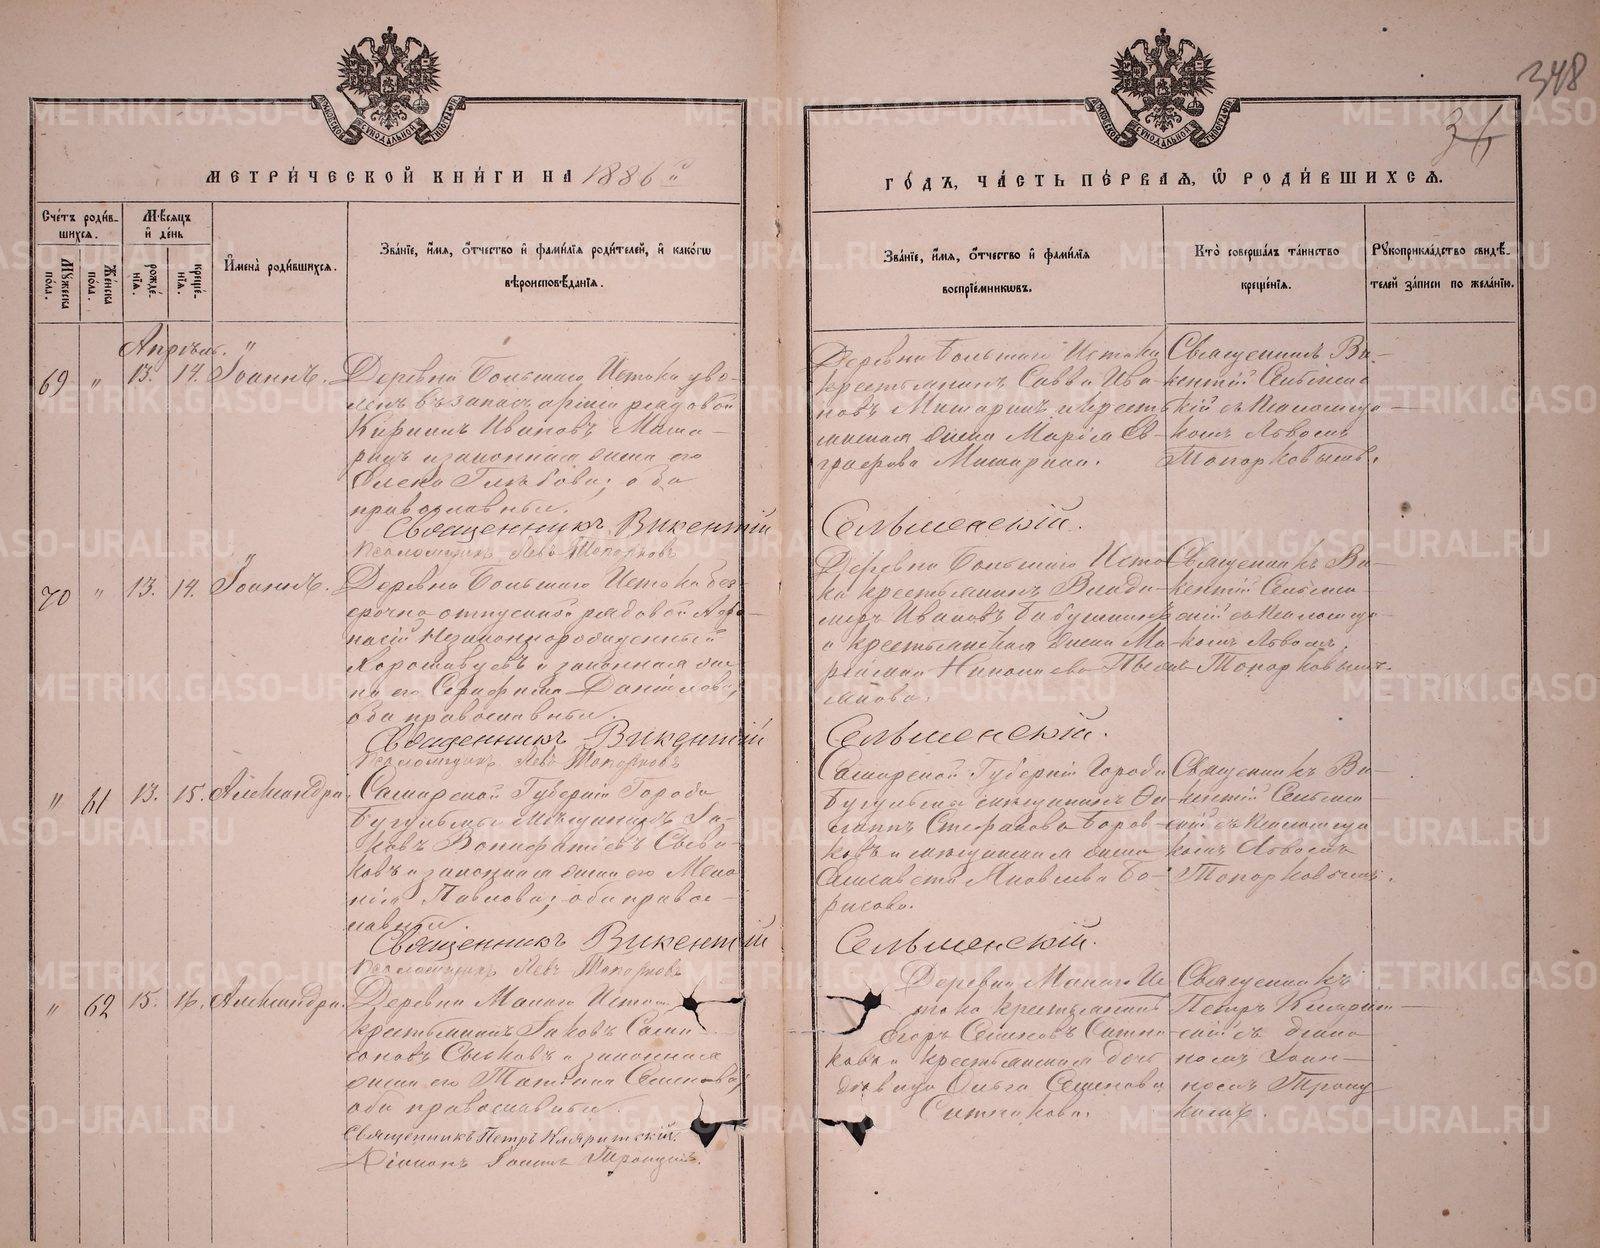 348
36
МЕТРИЧЕСКОЙ КНИГИ НА 1886 й
ГОДЪ, ЧАСТЬ ПЕРВАЯ, Ѡ РОДИВШИХСЯ.
Счетъ родив-
шихся.
Мѣсяцъ
и день
Мужеска пола.
Женска пола.
рожде-
нія.
креще-
нія.
Имена родившихся.
Званіе, имя, отчество и фамилія родителей, и какогѡ
вѣроисповѣданія.
Званіе, имя, отчество и фамилія
воспріемникѡвъ.
Кто совершалъ таинство
крещенія.
Рукоприкладство свидѣ-
телей записи по желанію.
Апрѣль.
69 " 13. 14. Іоаннъ.
Деревни Большаго Истока уво-
ленъ въ запасъ арміи рядовой
Кириллъ Ивановъ Маша-
ринъ и законная жена его
Елена Глѣбова; оба
православны.
Священникъ Викентій Сельменскій.
Псаломщикъ Левъ Топорковъ
Деревни Большаго Истока
крестьянинъ Савва Ива-
новъ Машаринъ и крестья-
Марія Ев-
графова Машарина.
Священникъ Ви-
кентій Сельменс
кій съ Псаломщи-
комъ Львомъ
Топорковымъ.
70 " 13. 14. Іоаннъ.
Деревни Большаго Истока без-
срочно отпускной рядовой Аѳа-
насій Незаконнорожденный
Хорошавцевъ и законная же-
на его Серафима Данилова;
оба православны.
Священникъ Викентій Сельменскій.
Псаломщикъ Левъ Топорковъ
Деревни Большаго Исто
ка крестьянинъ Влади-
міръ Ивановъ Бабушкинъ
и крестьянская жена Ма-
Николаева
Священникъ Ви-
кентій Сельмен
скій съ Псаломщи
комъ Львомъ
Топорковымъ.
" 61 13. 15. Александра.
Самарской Губерніи Города
Бугульмы мѣщанинъ Іа-
ковъ Вонифатіевъ
и законная жена его Мела-
нія Павлова; оба право-
славны.
Священникъ Викентій Сельменскій.
Псаломщикъ Левъ Топорковъ
Самарской Губерніи Города
Бугульмы мѣщанинъ Фи-
липпъ Стефановъ Бори-
совъ и мѣщанская жена
Елисавета Яковлева Бо-
рисова.
Священникъ Ви-
кентій Сельмен
скій съ Псаломщи
комъ Львомъ
Топорковымъ.
" 62 15. 16. Александра.
Деревни Малаго Истока
крестьянинъ Іаковъ Сам-
соновъ Сысковъ и законная
жена его Татіана Семенова;
оба православны.
Священникъ Петръ Кляритскій.
Діаконъ Іоаннъ Троицкій.
Деревни Малаго Ис
тока крестьянинъ
Егоръ Семеновъ Ситни
ковъ и крестьянская дочь
дѣвица Ольга Семенова
Ситникова.
Священникъ
Петръ Клярит-
скій съ Діако
номъ Іоан-
номъ Троиц
кимъ.